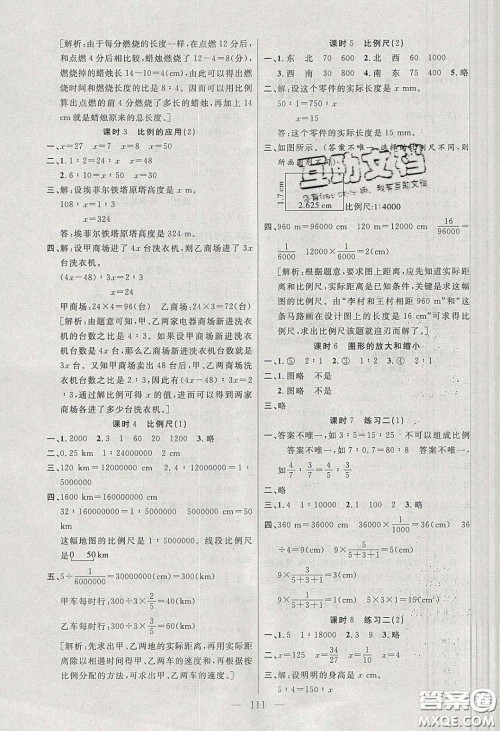 [解析:由于每分燃烧的长度一样,在点燃12分后
和点燃8分后相比较,蜡烛燃烧了12-4=8(分),
燃烧的蜡烛长14-10=4(cm),也就可以求出每
分燃烧了多少厘米,因为每分燃烧的一样,可用比
例算出点燃4分的燃烧了多长的蜡烛,再加上14
就是蜡烛原来的总长度。]
课时3 比例的应用(2)
一、x=27 x=7 x=24 x=50
二、1.2 2.54 3.9 4.略
三、解:设埃菲尔铁塔原塔高度是x m。
108∶x=1∶3
x=324
答:埃菲尔铁塔原塔高度是324 m。
四、解:设甲商场进了4x台洗衣机,则乙商场进了3x
台洗衣机。
(4x-48)∶3x=2∶3
x=24
甲商场:24×4=96(台) 乙商场:24×3=72(台)
[解析:由题意可知,甲、乙两家电器商场新进洗衣
机的台数之比是4∶3,所以设甲商场新进洗衣机
的台数是4x台,则乙商场新进洗衣机的台数是3x
台。如果甲商场卖出48台后,甲、乙两商场剩下的
台数的比是2∶3,可得比例(4x-48)∶3x=2∶3,
解这个比例就可以求出x的值,进而求出甲、乙商
场各进了多少台洗衣机。]
课时4 比例尺(1)
一、1.2000 2.3 1 60 15 3.略
二、0.25 km 1∶20000
三、120 km=12000000 cm
2.4∶12000000=1∶5000000
四、1600 km=160000000 cm
32∶160000000=1∶5000000
5000000 cm=50 km
这幅地图的比例尺是1∶5000000,线段比例尺是
0 50km
五、5÷1/6000000=30000000(cm)=300(km)
甲车每时行:300÷3×2/5=40(km)
乙车每时行:300÷3×3/5=60(km)
[解析:先求出甲、乙两地的实际距离,再根据甲、
乙两车的速度和=甲、乙两地的距离÷时间,按照
比例分配的方法,可求出甲、乙两车的速度。]
课时5 比例尺(2)
一、1.东 北 70 2.东 南 60 北 西 75
3.西南 30 南 东 800 4.西 500 5.略
二、解:设这个零件的实际长度是x mm。
50∶1=750∶x
x=15
答:这个零件的实际长度是15 mm。
三、如图所示。(答案不唯一,选择的比例尺不同,则所
1.7 cm
2.625 cm 比例尺:1∶4000
四、960 m=96000 cm 16/96000=1/6000
[解析:根据题意,要求图上距离,应先知道实际距
离和比例尺,而实际距离是已知条件,关键是求比
例尺。由“李村和王村相距960 m”和“图上这
条马路画了16 cm”可得出比例尺,“这条马路的
设计长度是”这个问题就迎刃而解了。]
课时6 图形的放大和缩小
一、1.⑤ 2.④ 3.2∶1 4.②
二、图略 不是
三、图略 不是
课时7 练习二(1)
一、答案不唯一,如3∶5=15∶25 不可以组成比例
答案不唯一,如7∶0.7=80∶8 答案不唯一,
二、1.4 2.1 4 3.1∶9000
三、略
四、360 m=36000 cm 36000×1/1000=36(cm)
36
÷4=9(cm)
9×5/5+3+1=5(cm) 9×3/5+3+1=3(cm)
9×1/5+3+1=1(cm)
课时8 练习二(2)
一、1.5 2.1∶18000 3.9 4.略
三、解:设明明的身高是x cm。
5∶4=150∶x
111